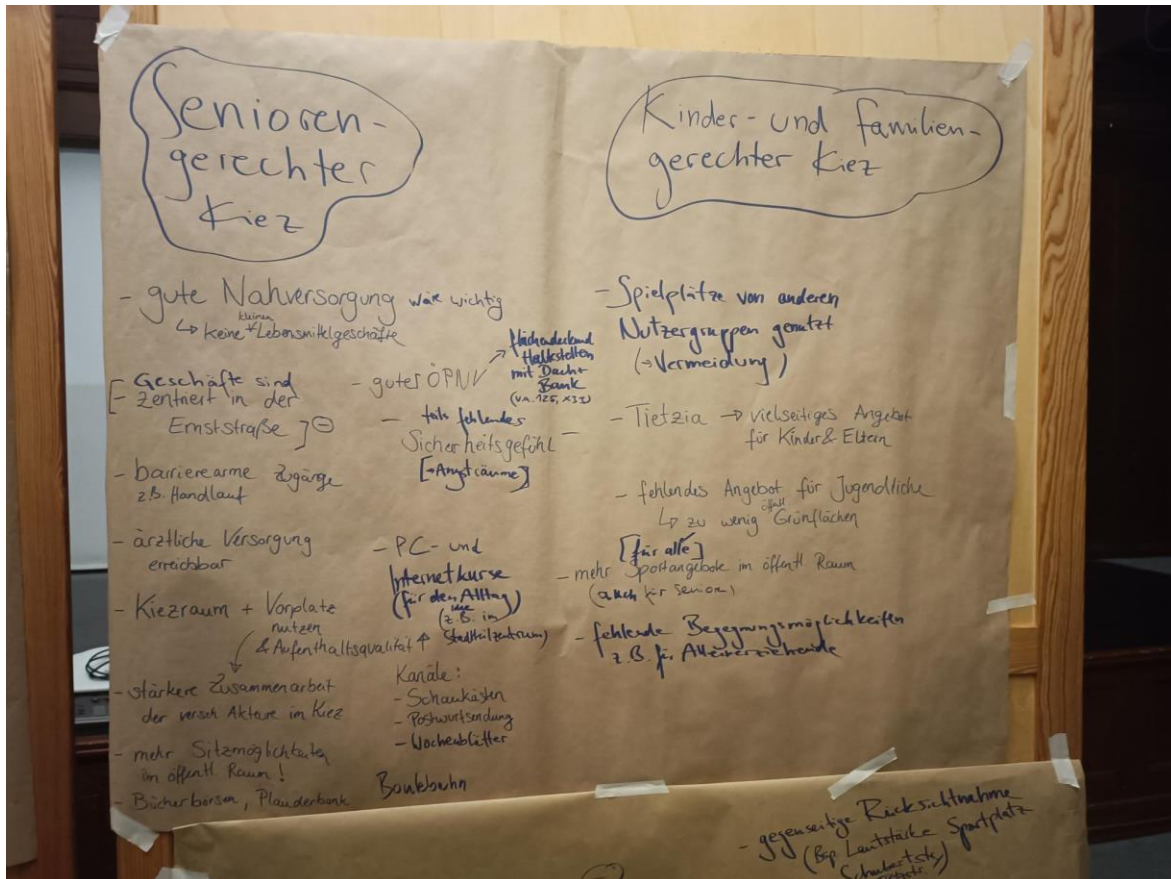 Senioren-
gerechter
Kiez
- gute Nahversorgung wär wichtig
kleinen
↳ keine Lebensmittelgeschäfte
[- Geschäfte sind
- zentriert in der
Ernststraße ] ⊖
- barrierearme Zugänge
z.B. Handlauf
- ärztliche Versorgung
erreichbar
- Kiezraum + Vorplatz
nutzen
& Aufenthaltsqualität ↑
- stärkere Zusammenarbeit
der versch Akteure im Kiez
- mehr Sitzmöglichkeiten
im öffentl Raum!
- Bücherbörsen, Plauderbank
- guter ÖPNV
flächendeckend
Haltestellen
mit Dach +
Bank
(v.a. 125, X33)
- teils fehlendes
Sicherheitsgefühl -
[→ Angsträume]
- PC- und
Internetkurse
(für den Alltag)
(z.B. im
Stadtteilzentrum)
Kanäle:
- Schaukästen
- Postwurfsendung
- Wochenblätter
Kinder- und familien-
gerechter Kiez
- Spielplätze von anderen
Nutzergruppen genutzt
(→ Vermeidung)
- Tietzia → vielseitiges Angebot
für Kinder & Eltern
- fehlendes Angebot für Jugendliche
öffentl
↳ zu wenig Grünflächen
[für alle]
- mehr Sportangebote im öffentl Raum
(auch für Senior.)
- fehlende Begegnungsmöglichkeiten
z.B. für Alleinerziehende
- gegenseitige Rücksichtnahme
(Bsp Lautstärke Sportplatz